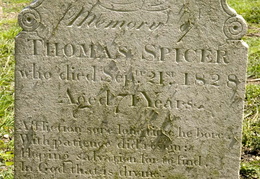 Memory of
THOMAS SPICER
who died Sept. 21st. 1828
Aged 71 Years.
Affliction sore long time he bore
With patience did
salvation for to find
In God that is divine